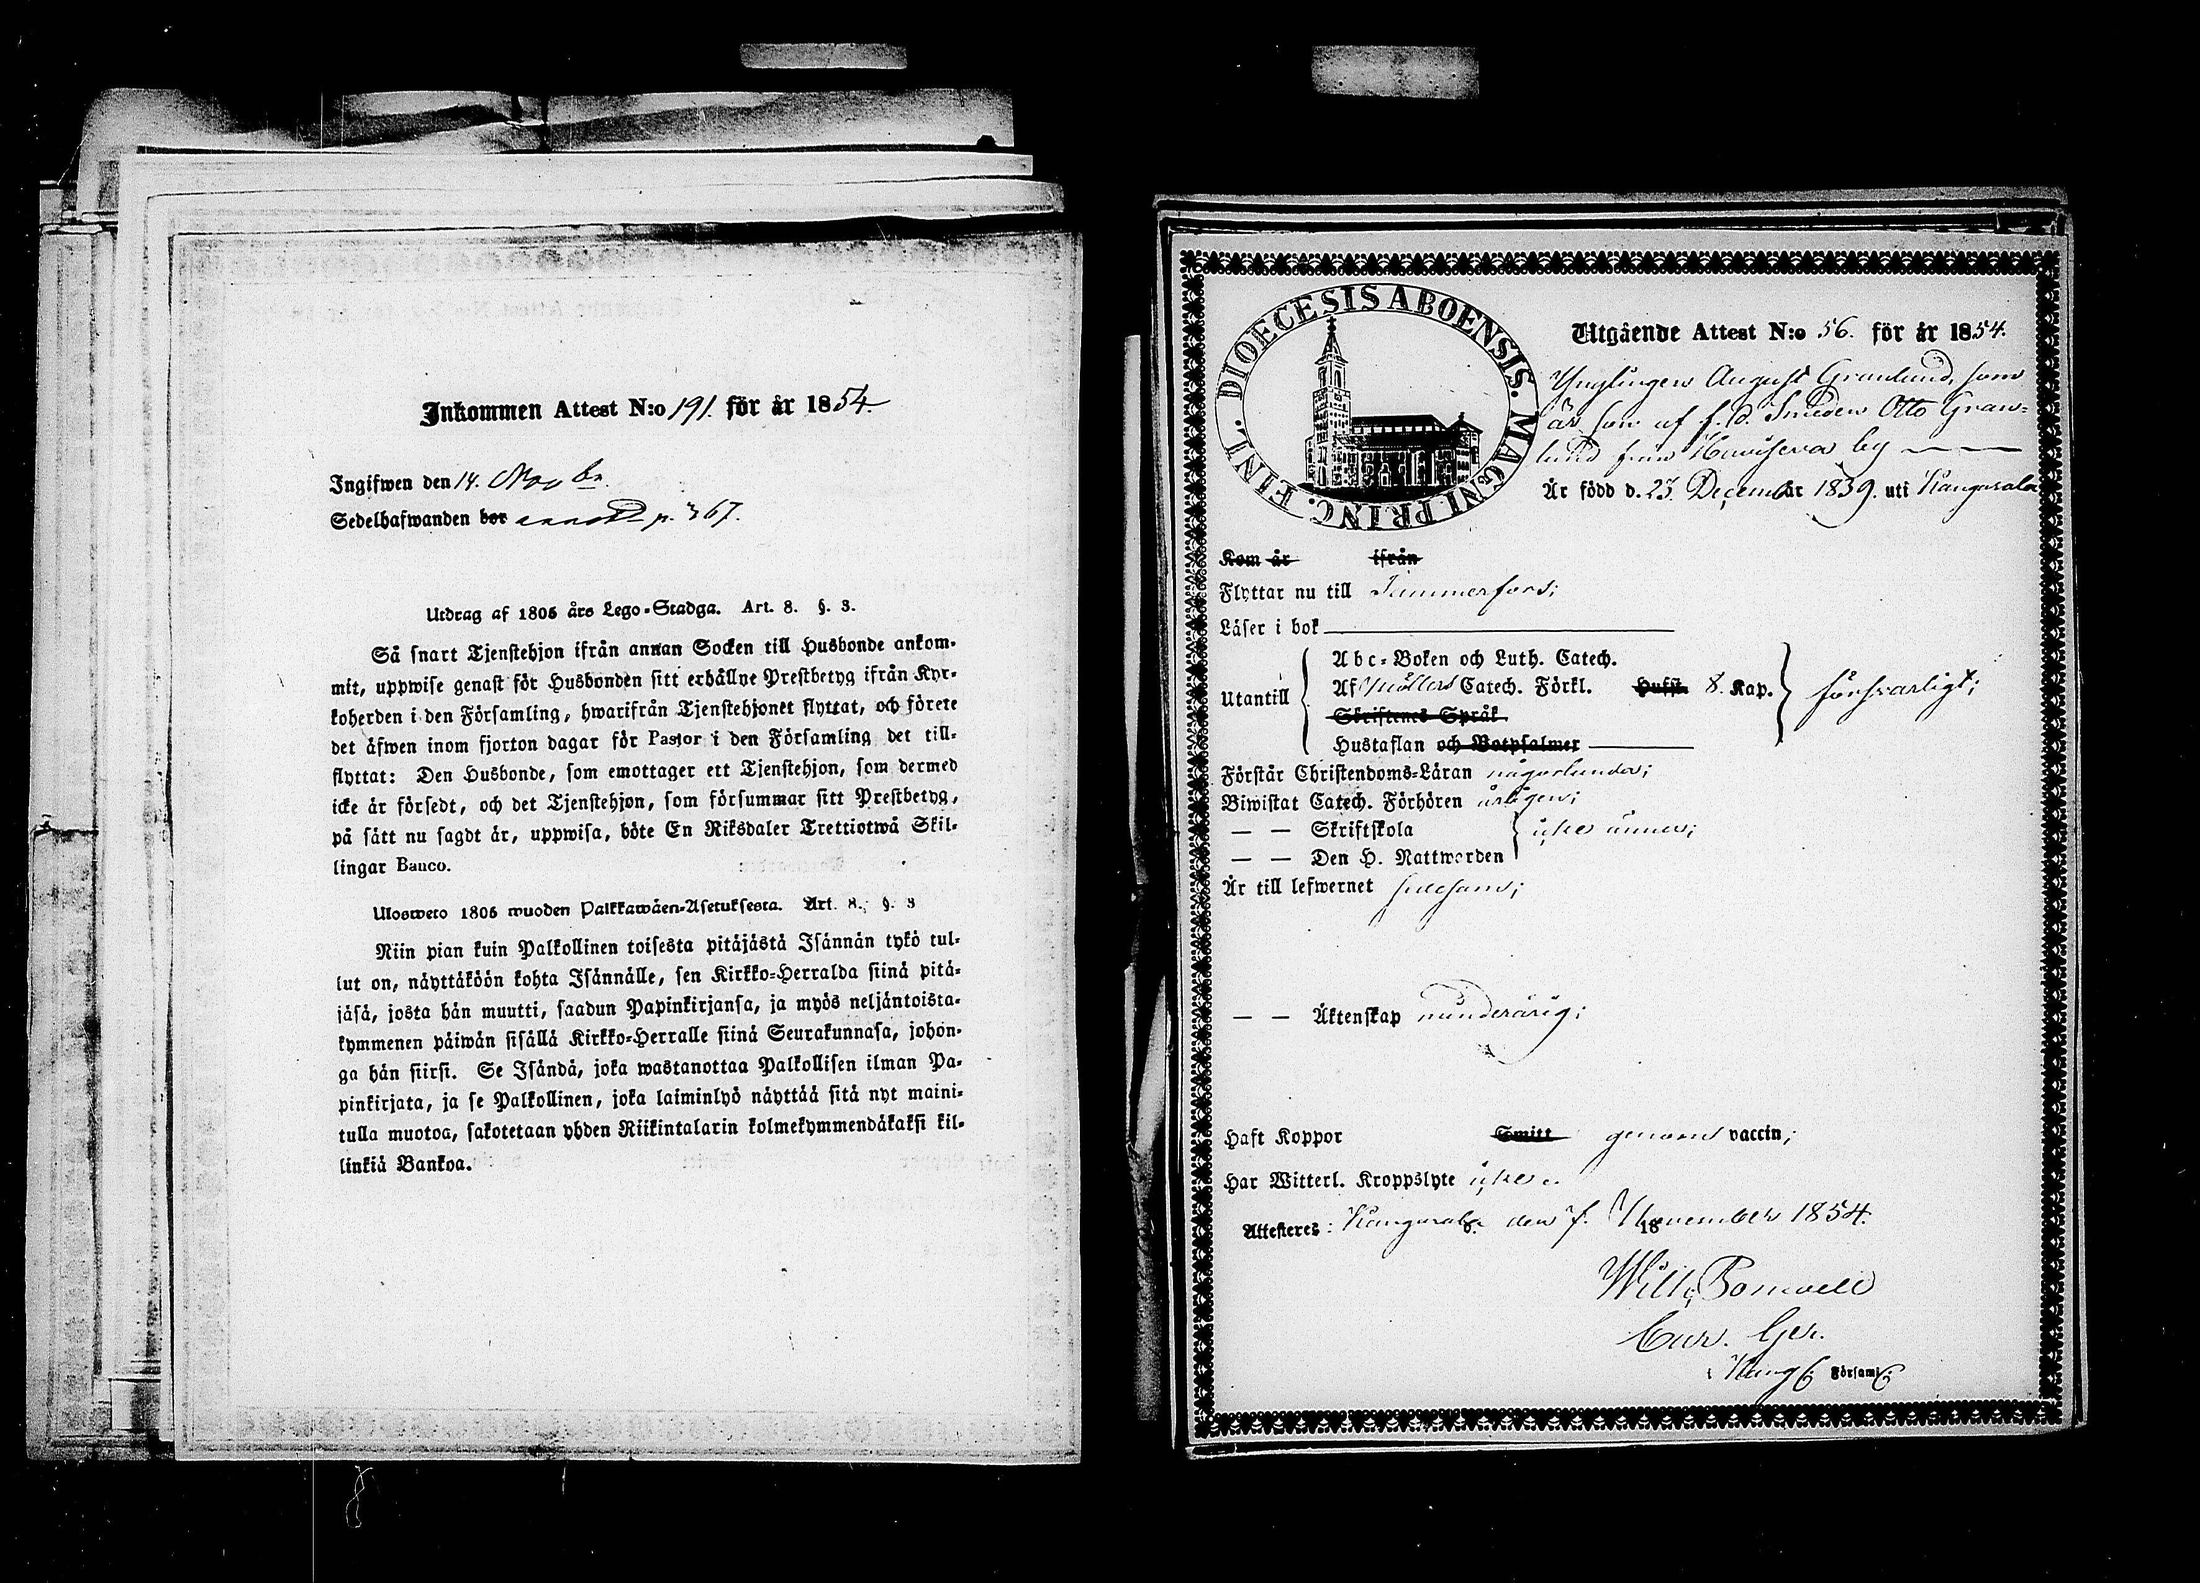 Inkommen Attest N:o 191. för år 1854.
Ingifwen den 14. Novbr.
Sedelhafwanden bor p. 367.
Utdrag af 1805 års Lego-Stadga. Art. 8. §. 3.
Så snart Tjenstehjon ifrån annan Socken till Husbonde ankom-
mit, uppwise genast för Husbonden sitt erhållne Prestbetyg ifrån Kyr-
koherden i den Församling, hwarifrån Tjenstehjonet flyttat, och förete
det äfwen inom fjorton dagar för Pastor i den Församling det till-
flyttat: Den Husbonde, som emottager ett Tjenstehjon, som dermed
icke är försedt, och det Tjenstehjon, som försummar sitt Prestbetyg,
på sätt nu sagdt är, uppwisa, böte En Riksdaler Trettiotwå Skil-
lingar Banco.
Ulosweto 1805 wuoden Palkkawäen-Asetuksesta. Art. 8. §. 3
Niin pian kuin Palkollinen toisesta pitäjästä Isännän tykö tul-
lut on, näyttäköön kohta Isännälle, sen Kirkko-Herralda siinä pitä-
jäsä, josta hän muutti, saadun Papinkirjansa, ja myös neljäntoista-
kymmenen päiwän sisällä Kirkko-Herralle siinä Seurakunnasa, johon-
ga hän siirsi. Se Isändä, joka wastanottaa Palkollisen ilman Pa-
pinkirjata, ja se Palkollinen, joka laiminlyö näyttää sitä nyt maini-
tulla muotoa, sakotetaan yhden Riikintalarin kolmekymmendäkaksi kil-
linkiä Bankoa.
DIOECESIS ABOENSIS. MAGNI. PRINC. FINL.
Utgående Attest N:o 56. för år 1854.
Ynglingen August Granlund, som
är son af f. d. Smeden Otto Gran-
lund från Haviseva by
Är född d. 23. December 1839. uti Kangasala
Kom år ifrån
Flyttar nu till Tammerfors;
Läser i bok
Abc-Boken och Luth. Catech.
Utantill Af Möllers Catech. Förkl. Hufst. 8. Kap. försvarligt;
Skriftenes Språk
Hustaflan och Botpsalmer
Förstår Christendoms-Läran någorlunda;
Biwistat Catech. Förhören årligen;
— — Skriftskola icke ännu;
— — Den H. Nattwarden
Är till lefwernet sedesam;
— — Äktenskap minderårig;
Haft Koppor Smitt genom vaccin;
Har Witterl. Kroppslyte icke.
Attesteres: Kangasala d. den 7. 18 November 1854.
Wilh.
Cur. Ger.
i Kang. Församl.